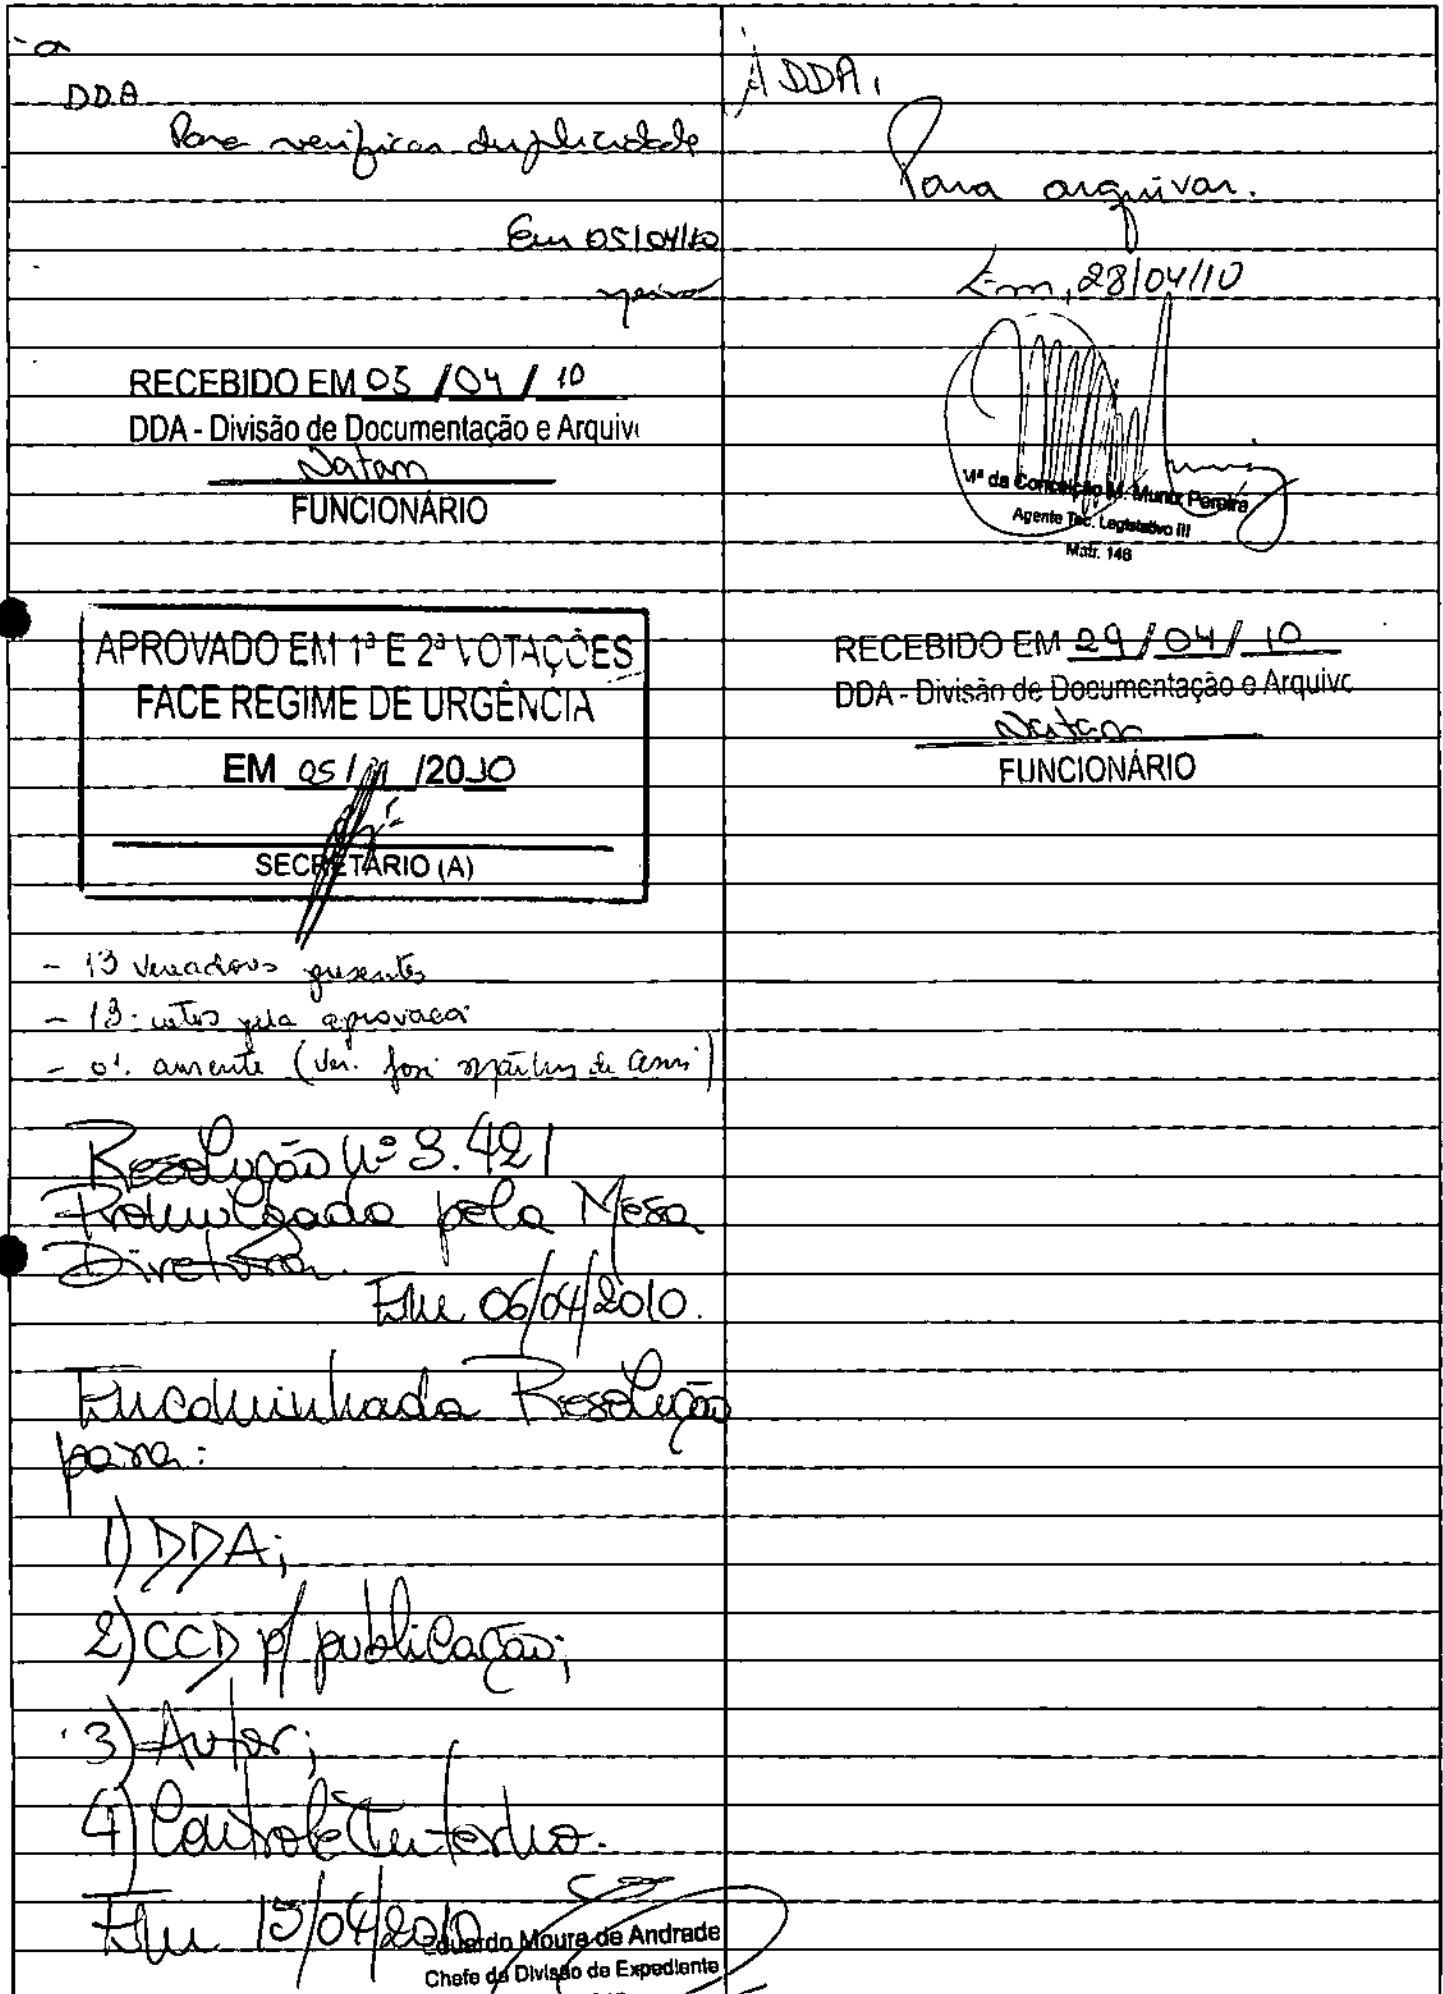 DDA
Para verificar duplicidade
Em 05/04/10
RECEBIDO EM 05 / 04 / 10
DDA - Divisão de Documentação e Arquivo
Natan
FUNCIONÁRIO
APROVADO EM 1ª E 2ª VOTAÇÕES
FACE REGIME DE URGÊNCIA
EM 05 / /2010
SECRETÁRIO (A)
- 13 vereadores presentes
- 13 votos pela aprovação
- 01 ausente (Ver. José de Assis)
Resolução nº 3.421
Promulgada pela Mesa
Diretora.
Em 06/04/2010.
Encaminhada Resolução
para:
1) DDA;
2) CCD p/ publicação;
3) Autor;
4) Controle Interno.
Em 15/04/2010
Eduardo Moura de Andrade
Chefe da Divisão de Expediente
À DDA,
Para arquivar.
Em, 28/04/10
Mª da Conceição M. Muniz Pereira
Agente Tec. Legislativo III
Matr. 146
RECEBIDO EM 29 / 04 / 10
DDA - Divisão de Documentação e Arquivo
Natan
FUNCIONÁRIO